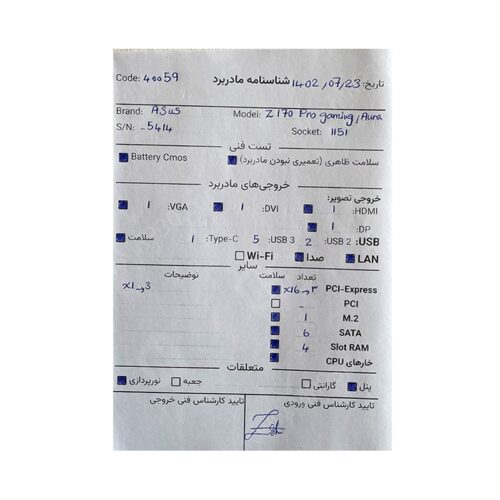 Code: 40059 شناسنامه مادربرد تاریخ: 1402,07,23
Brand: ASus Model: Z170 Pro gaming, Aura
S/N: -5414 Socket: 1151
تست فنی
Battery Cmos سلامت ظاهری (تعمیری نبودن مادربرد)
خروجی‌های مادربرد
خروجی تصویر:
HDMI: 1 DVI: 1 VGA: 1
DP: 1
USB: USB 2: 2 USB 3: 5 Type-C: 1 سلامت
LAN صدا Wi-Fi
سایر
تعداد سلامت توضیحات
PCI-Express x16→3 x1→3
PCI -
M.2 1
SATA 6
Slot RAM 4
خارهای CPU
متعلقات
پنل گارانتی جعبه نورپردازی
تایید کارشناس فنی ورودی تایید کارشناس فنی خروجی